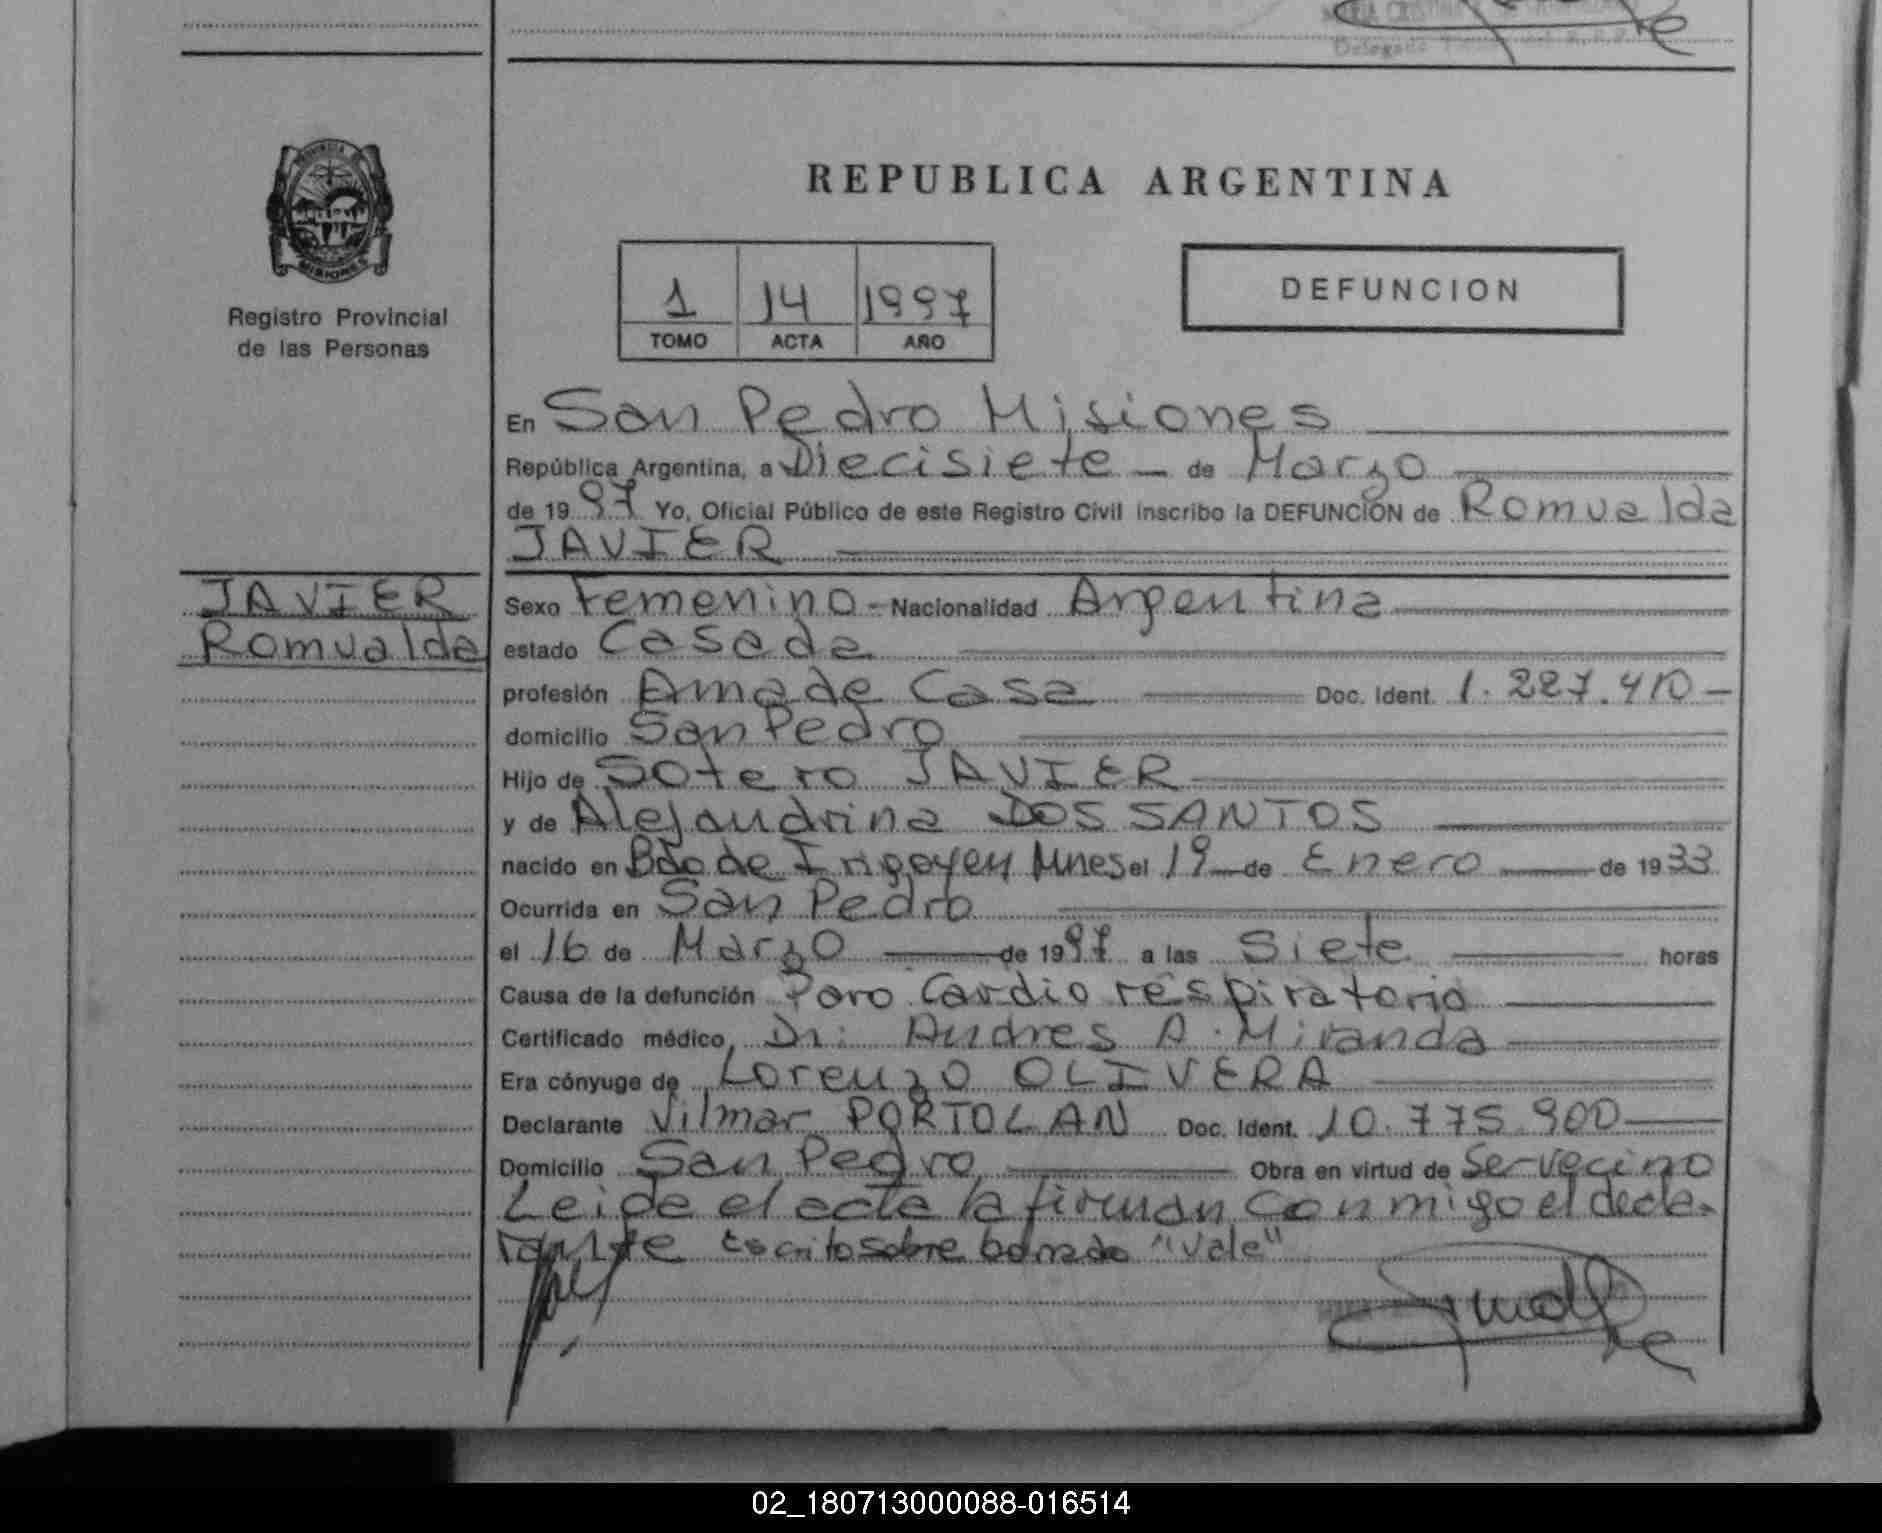 PROVINCIA DE
MISIONES
Registro Provincial
de las Personas
REPUBLICA ARGENTINA
1 14 1997
TOMO ACTA AÑO
DEFUNCION
En San Pedro Misiones
República Argentina, a Diecisiete de Marzo
de 1997 Yo, Oficial Público de este Registro Civil inscribo la DEFUNCION de Romualda
JAVIER
JAVIER
Romualda
Sexo Femenino - Nacionalidad Argentina
estado Casada
profesión Ama de Casa Doc. Ident. 1.227.410
domicilio San Pedro
Hijo de Sotero JAVIER
y de Alejandrina DOS SANTOS
nacido en Bdo de Irigoyen Mnes el 19 de Enero de 1933
Ocurrida en San Pedro
el 16 de Marzo de 1997 a las Siete horas
Causa de la defunción Paro Cardio respiratorio
Certificado médico Dr: Andres A. Miranda
Era cónyuge de Lorenzo OLIVERA
Declarante Vilmar PORTOLAN Doc. Ident. 10.775.900
Domicilio San Pedro Obra en virtud de Ser vecino
Leida el acta la firman conmigo el decla-
rante Escrito sobre borrado "Vale"
02_180713000088-016514